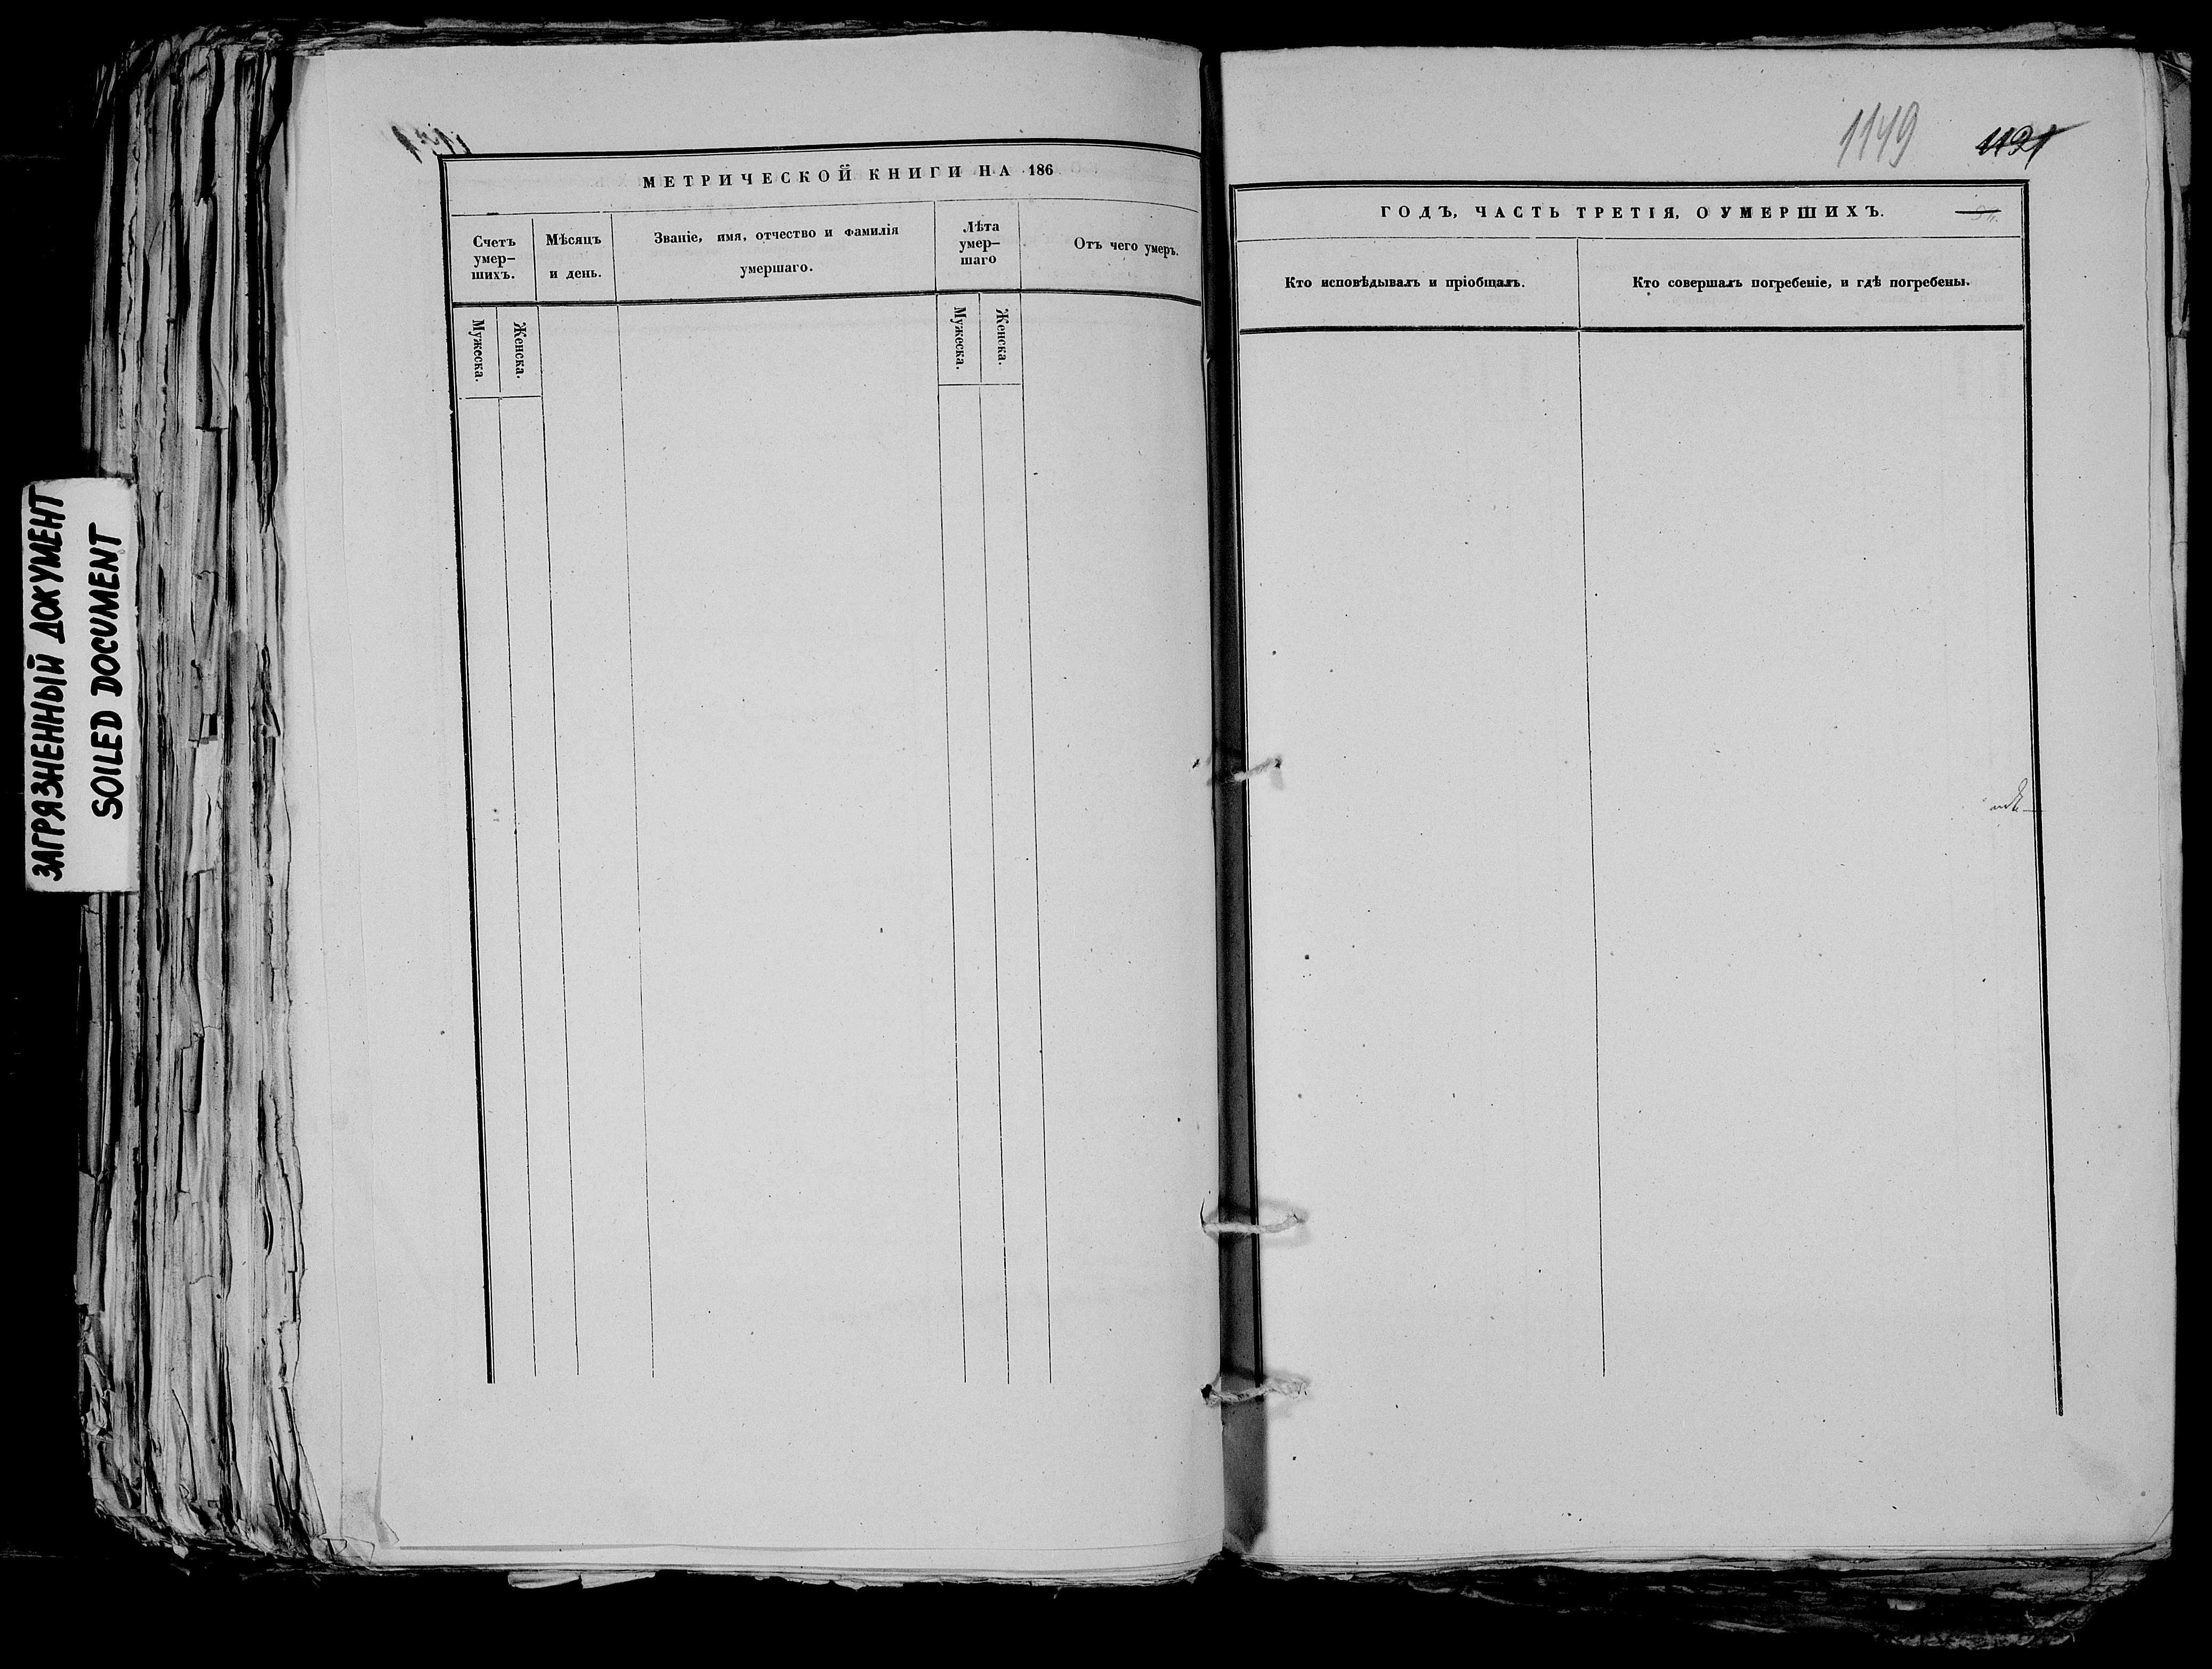 ЗАГРЯЗНЕННЫЙ ДОКУМЕНТ
SOILED DOCUMENT
МЕТРИЧЕСКОЙ КНИГИ НА 186
Счетъ умер-
шихъ.
Мѣсяцъ
и день.
Званіе, имя, отчество и фамилія
умершаго.
Лѣта
умер-
шаго
Отъ чего умеръ.
Мужеска.
Женска.
Мужеска.
Женска.
1149
1191
ГОДЪ, ЧАСТЬ ТРЕТІЯ, О УМЕРШИХЪ.
Кто исповѣдывалъ и пріобщалъ.
Кто совершалъ погребеніе, и гдѣ погребены.